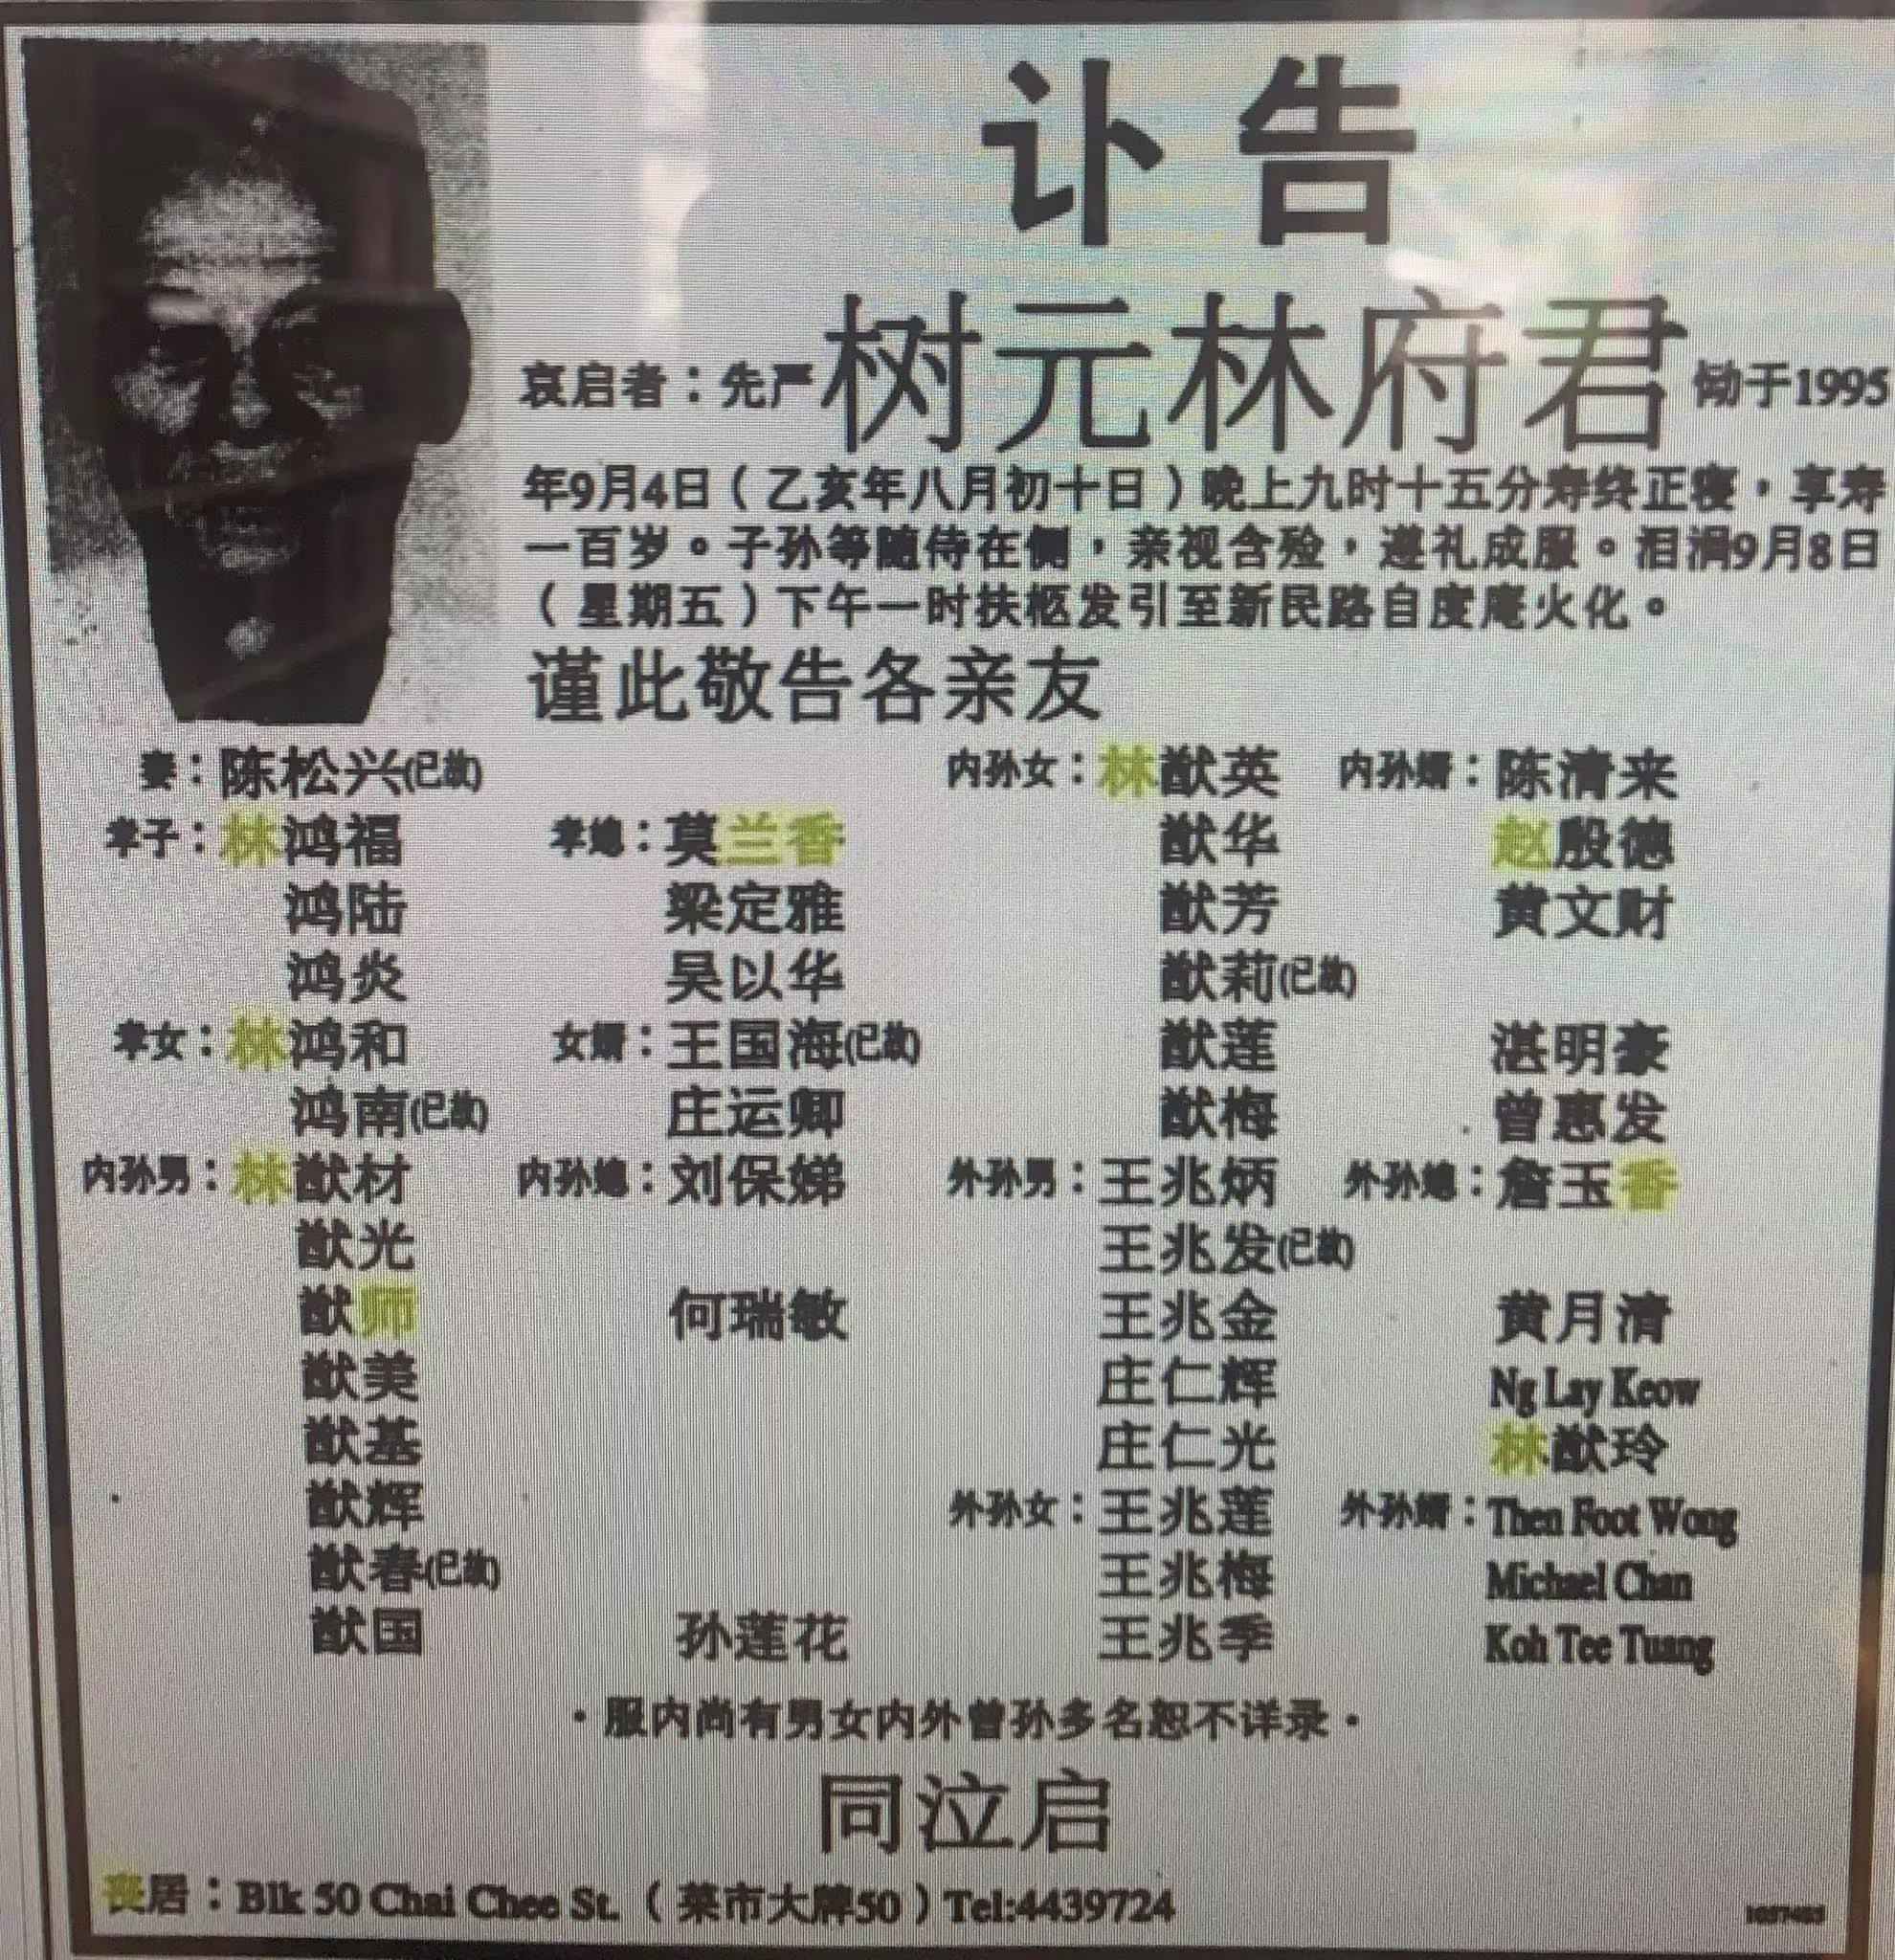 讣告
哀启者：先严树元林府君恸于1995
年9月4日（乙亥年八月初十日）晚上九时十五分寿终正寝，享寿
一百岁。子孙等随侍在侧，亲视含殓，遵礼成服。泪涓9月8日
（星期五）下午一时扶柩发引至新民路自度庵火化。
谨此敬告各亲友
妻：陈松兴(已故) 内孙女：林猷英 内孙婿：陈清来
孝子：林鸿福 孝媳：莫兰香 猷华 赵殷德
鸿陆 梁定雅 猷芳 黄文财
鸿炎 吴以华 猷莉(已故)
孝女：林鸿和 女婿：王国海(已故) 猷莲 湛明豪
鸿南(已故) 庄运卿 猷梅 曾惠发
内孙男：林猷材 内孙媳：刘保娣 外孙男：王兆炳 外孙媳：詹玉香
猷光 王兆发(已故)
猷师 何瑞敏 王兆金 黄月清
猷美 庄仁辉 Ng Lay Keow
猷基 庄仁光 林猷玲
猷辉 外孙女：王兆莲 外孙婿：Then Foot Wong
猷春(已故) 王兆梅 Michael Chan
猷国 孙莲花 王兆季 Koh Tee Tuang
·服内尚有男女内外曾孙多名恕不详录·
同泣启
丧居：Blk 50 Chai Chee St.（菜市大牌50）Tel:4439724